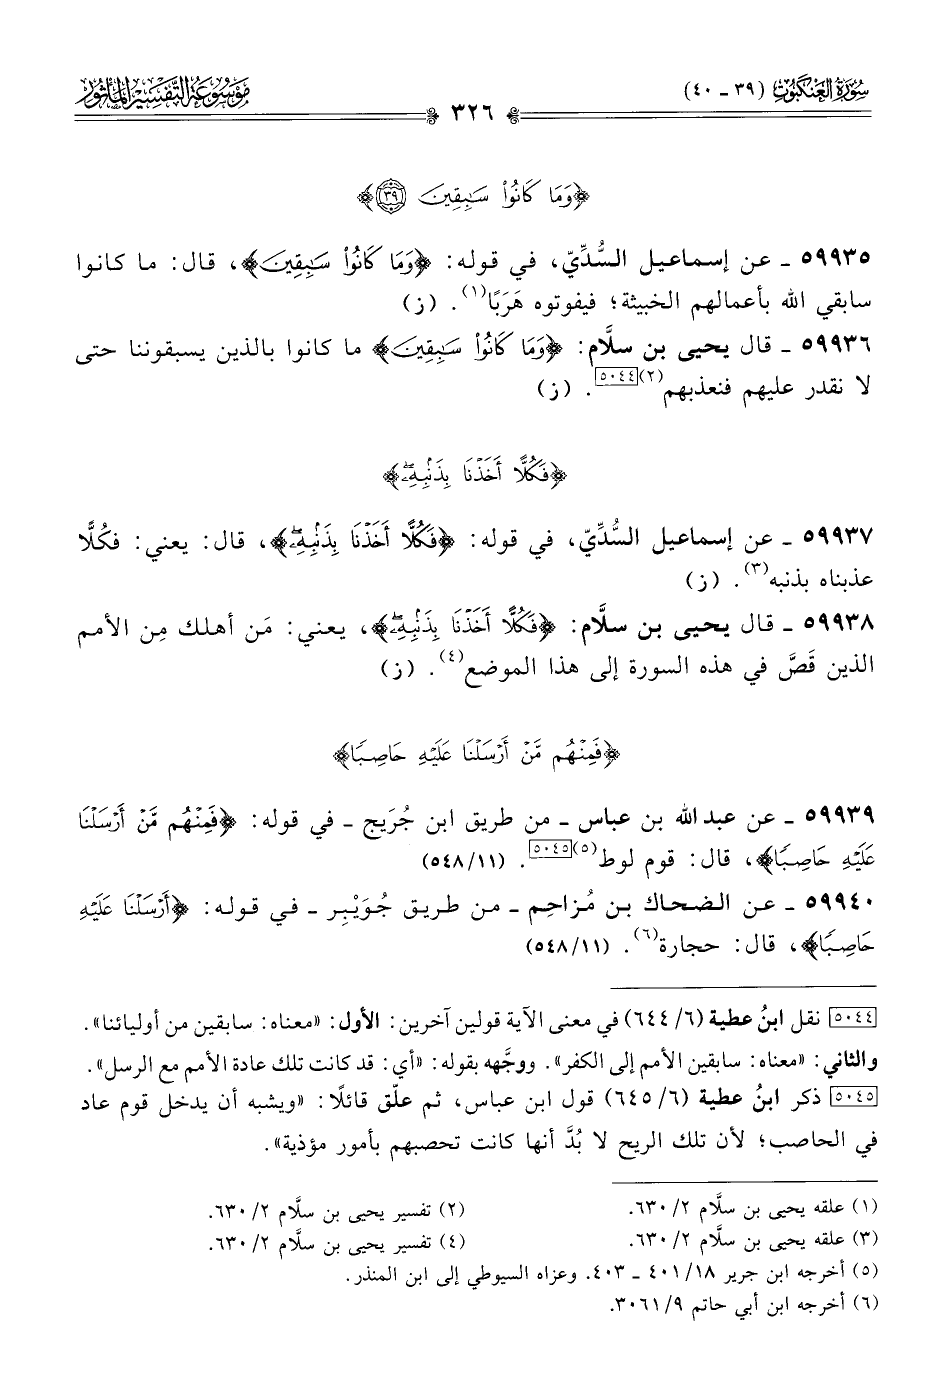 سُورَةُ العَنكَبُوتِ (٣٩ - ٤٠)
مَوْسُوعَة التَّفْسِيرُ المَأْثُور
٣٢٦
﴿وَمَا كَانُوا۟ سَـٰبِقِينَ ٣٩﴾
٥٩٩٣٥ - عن إسماعيل السُّدِّيّ، في قوله: ﴿وَمَا كَانُوا۟ سَـٰبِقِينَ﴾، قال: ما كانوا
سابقي الله بأعمالهم الخبيثة؛ فيفوتوه هَرَبًا(١). (ز)
٥٩٩٣٦ - قال يحيى بن سلَّام: ﴿وَمَا كَانُوا۟ سَـٰبِقِينَ﴾ ما كانوا بالذين يسبقوننا حتى
لا نقدر عليهم فنعذبهم(٢)[٥٠٤٤]. (ز)
﴿فَكُلًّا أَخَذْنَا بِذَنۢبِهِۦۖ﴾
٥٩٩٣٧ - عن إسماعيل السُّدِّيّ، في قوله: ﴿فَكُلًّا أَخَذْنَا بِذَنۢبِهِۦۖ﴾، قال: يعني: فكُلًّا
عذبناه بذنبه(٣). (ز)
٥٩٩٣٨ - قال يحيى بن سلَّام: ﴿فَكُلًّا أَخَذْنَا بِذَنۢبِهِۦۖ﴾، يعني: مَن أهلك مِن الأمم
الذين قَصَّ في هذه السورة إلى هذا الموضع(٤). (ز)
﴿فَمِنْهُم مَّنْ أَرْسَلْنَا عَلَيْهِ حَاصِبًا﴾
٥٩٩٣٩ - عن عبد الله بن عباس - من طريق ابن جُرَيج - في قوله: ﴿فَمِنْهُم مَّنْ أَرْسَلْنَا
عَلَيْهِ حَاصِبًا﴾، قال: قوم لوط(٥)[٥٠٤٥]. (٥٤٨/١١)
٥٩٩٤٠ - عن الضحاك بن مُزاحِم - من طريق جُوَيْبِر - في قوله: ﴿أَرْسَلْنَا عَلَيْهِ
حَاصِبًا﴾، قال: حجارة(٦). (٥٤٨/١١)
[٥٠٤٤] نقل ابنُ عطية (٦/ ٦٤٤) في معنى الآية قولين آخرين: الأول: «معناه: سابقين من أوليائنا».
والثاني: «معناه: سابقين الأمم إلى الكفر». ووجَّهه بقوله: «أي: قد كانت تلك عادة الأمم مع الرسل».
[٥٠٤٥] ذكر ابنُ عطية (٦/ ٦٤٥) قول ابن عباس، ثم علّق قائلًا: «ويشبه أن يدخل قوم عاد
في الحاصب؛ لأن تلك الريح لا بُدَّ أنها كانت تحصبهم بأمور مؤذية».
(١) علقه يحيى بن سلَّام ٢/ ٦٣٠.
(٢) تفسير يحيى بن سلَّام ٢/ ٦٣٠.
(٣) علقه يحيى بن سلَّام ٢/ ٦٣٠.
(٤) تفسير يحيى بن سلَّام ٢/ ٦٣٠.
(٥) أخرجه ابن جرير ١٨/ ٤٠١ - ٤٠٣. وعزاه السيوطي إلى ابن المنذر.
(٦) أخرجه ابن أبي حاتم ٩/ ٣٠٦١.